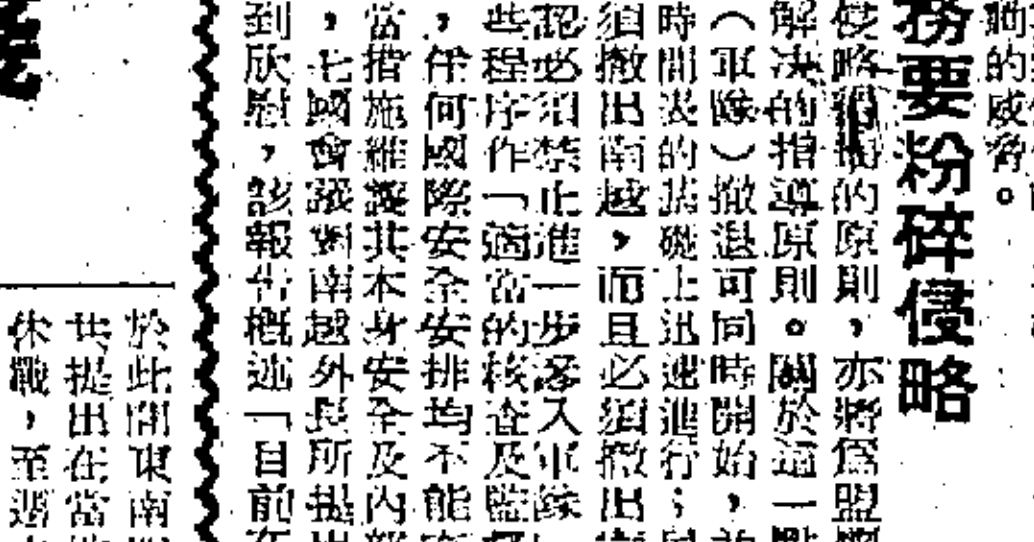 的威脅。
務要粉碎侵略
侵略的原則，亦將爲盟
解決的指導原則。關於這一點
（軍隊）撤退可同時開始，
時間表的基礎上迅速進行；
須撤出南越，而且必須撤出
認必須禁止進一步滲入軍隊
些程序作「適當的核查及監
，任何國際安全安排均不能
當措施維護其本身安全及內部
，七國會議對南越外長所提出
到欣慰，該報告概述「目前在
於此間東南
共提出在當地
休戰，至遲